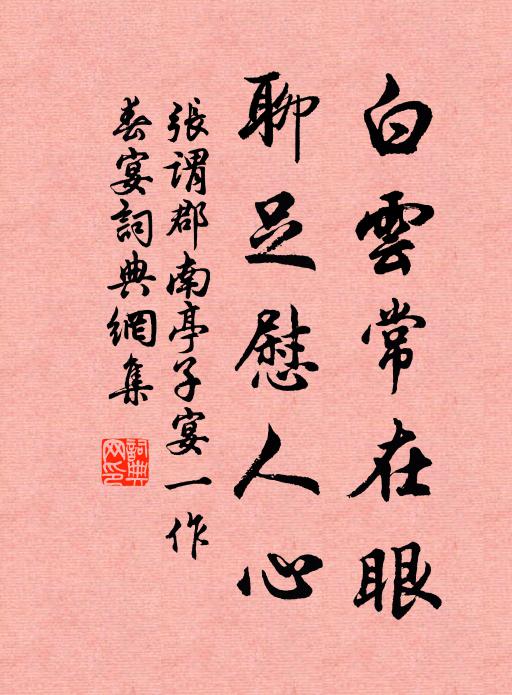 白雲常在眼
聊足慰人心
張謂郡南亭子宴一作
春宴詞典網集
詞典
网印